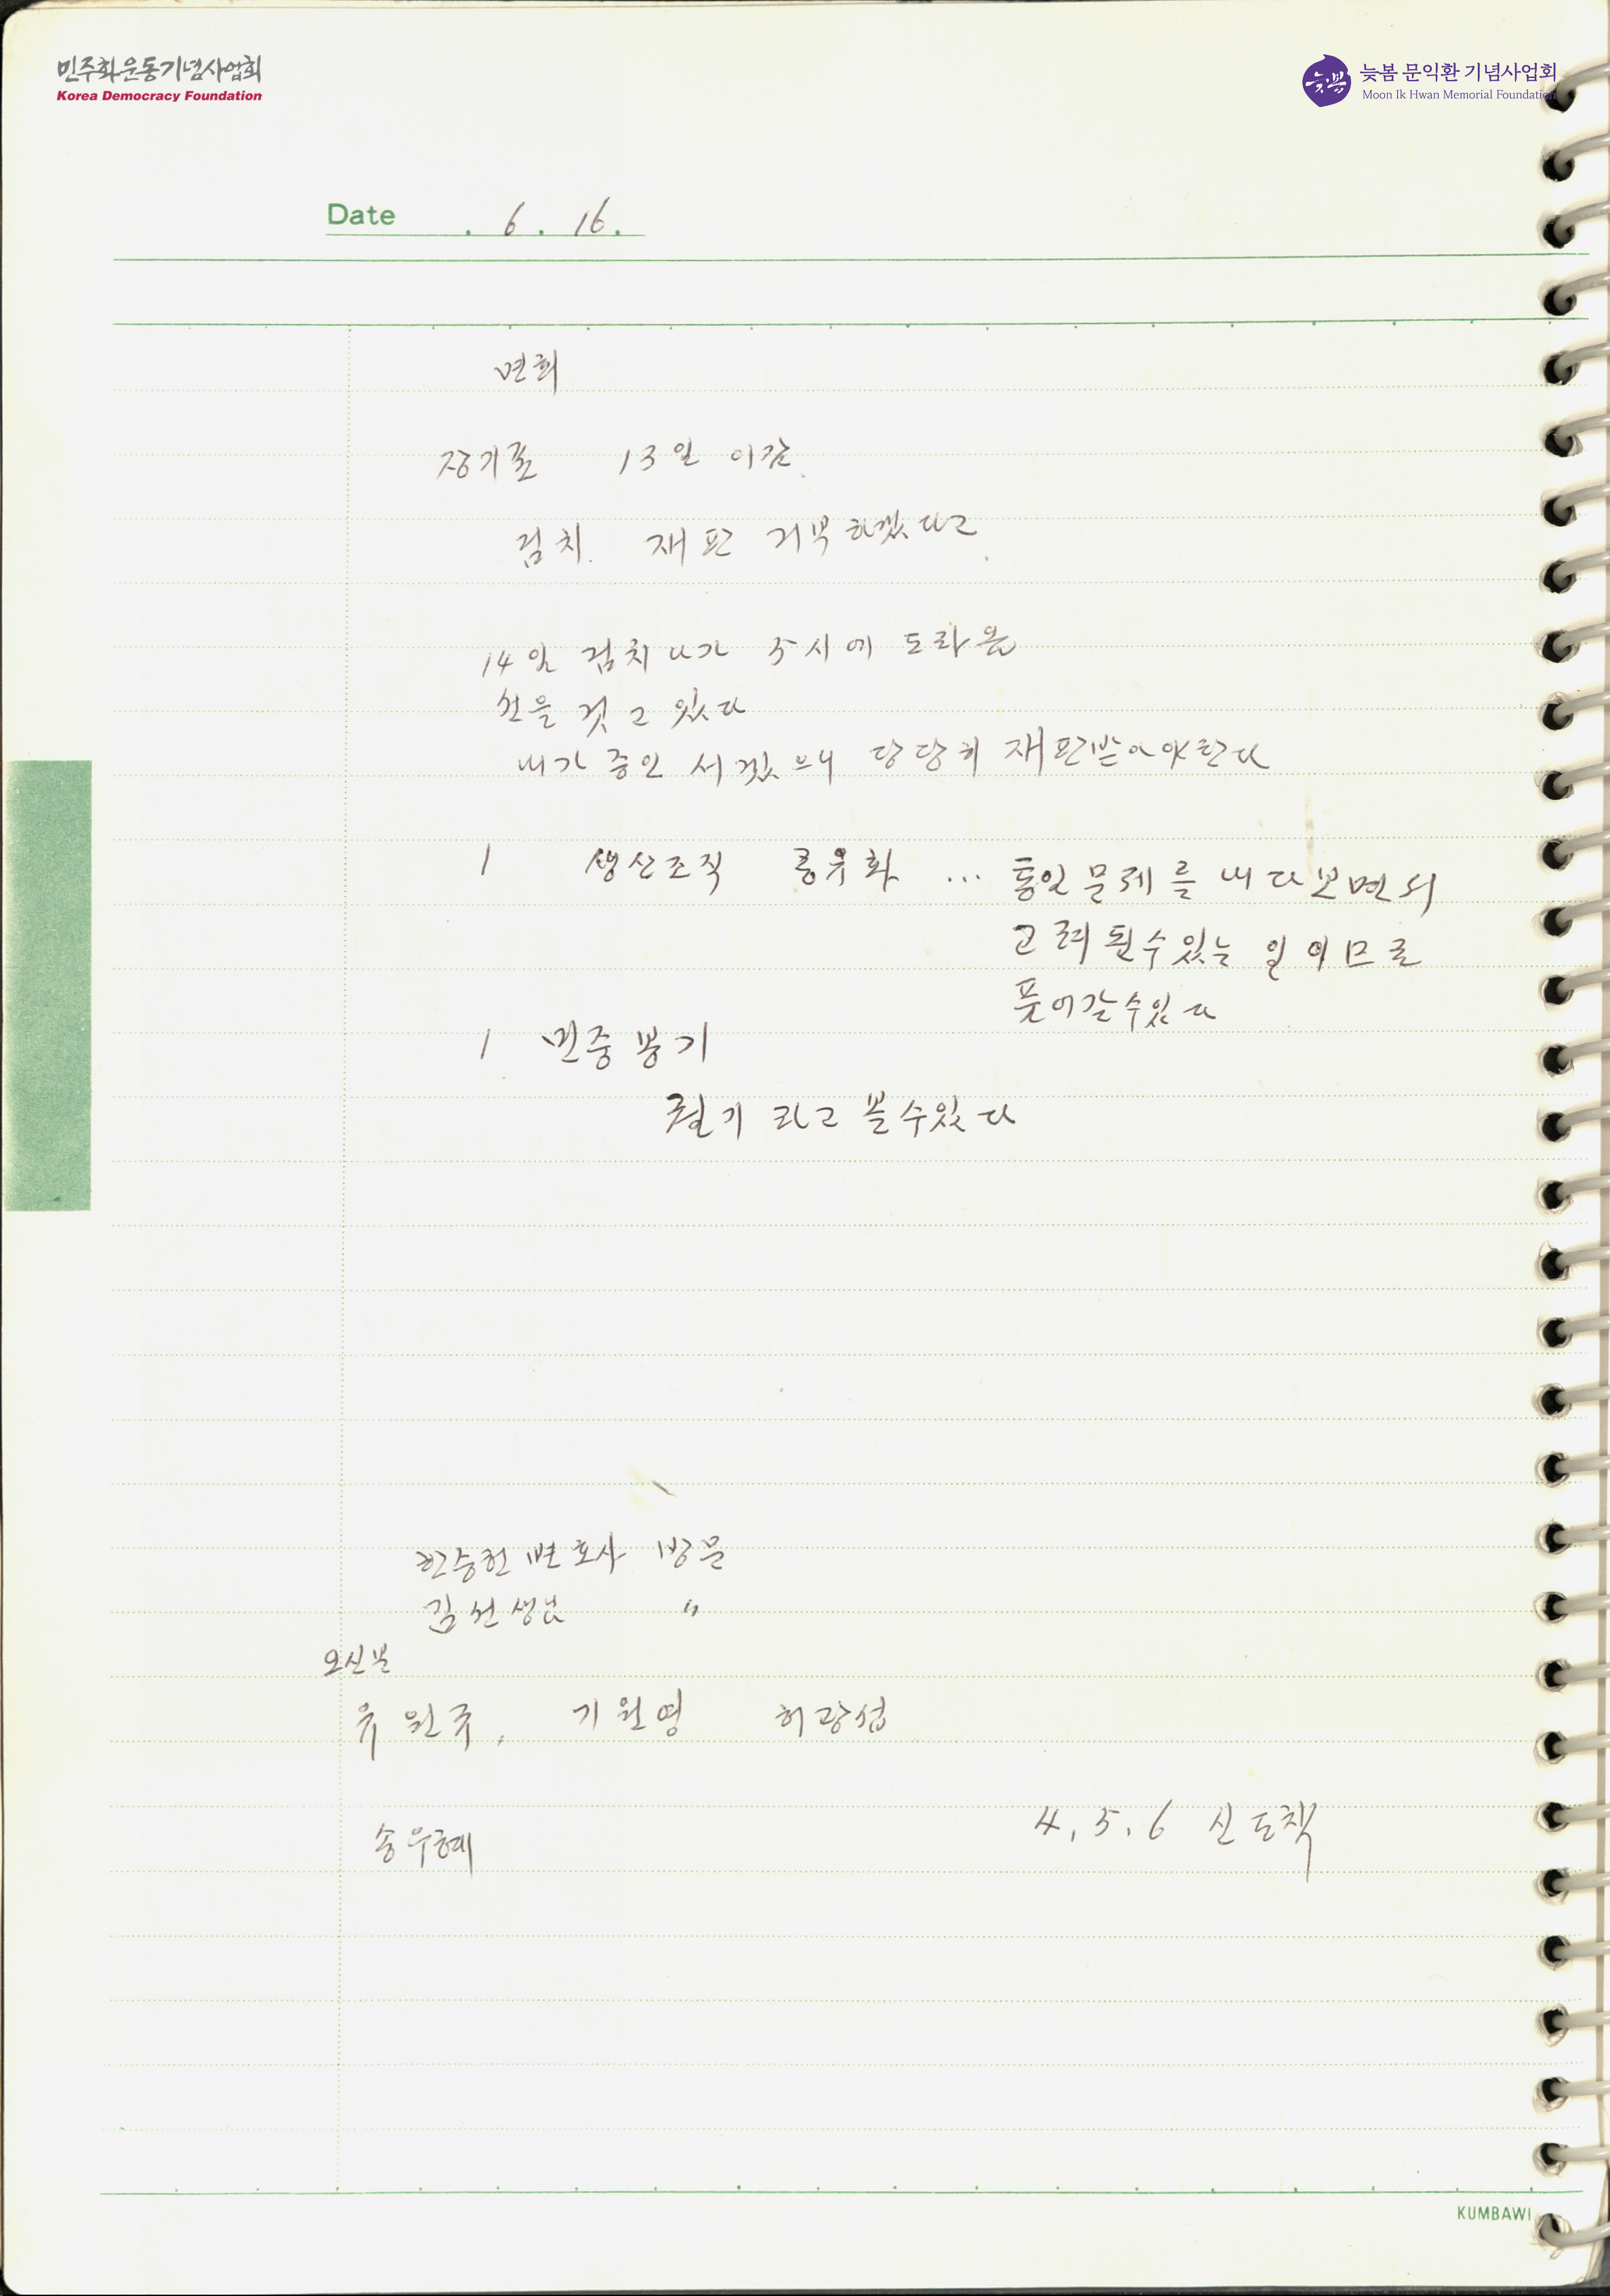 민주화운동기념사업회
Korea Democracy Foundation
늦봄 문익환 기념사업회
Moon Ik Hwan Memorial Foundation
Date . 6 . 16.
면회
장기표 13일 이감.
검치. 재판 거부하겠다고.
14일 검치 나가 5시에 도라옴
선을 것고 있다
내가 증인 서겠으니 당당히 재판받아야한다
1 생산조직 공유화 ... 통일 문제를 내다보면서
고려 될수있는 일이므로
풋어갈수있다
1 민중봉기
궐기 라고 볼수있다
한승헌 변호사 방문
김선생님 〃
오신분
유원규, 기원영 허광섭
송우혜
4, 5, 6 신도책
KUMBAWI